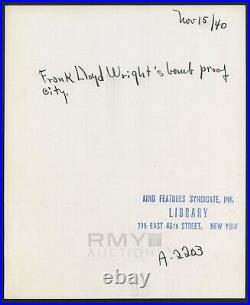 Nov 15/40
Frank Lloyd Wright's bomb proof
city.
KING FEATURES SYNDICATE, INC.
LIBRARY
235 EAST 45th STREET, NEW YORK
RMY
AUCTIONS
A-2203